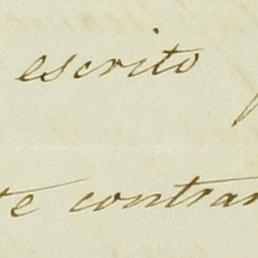 escrito
te contrar